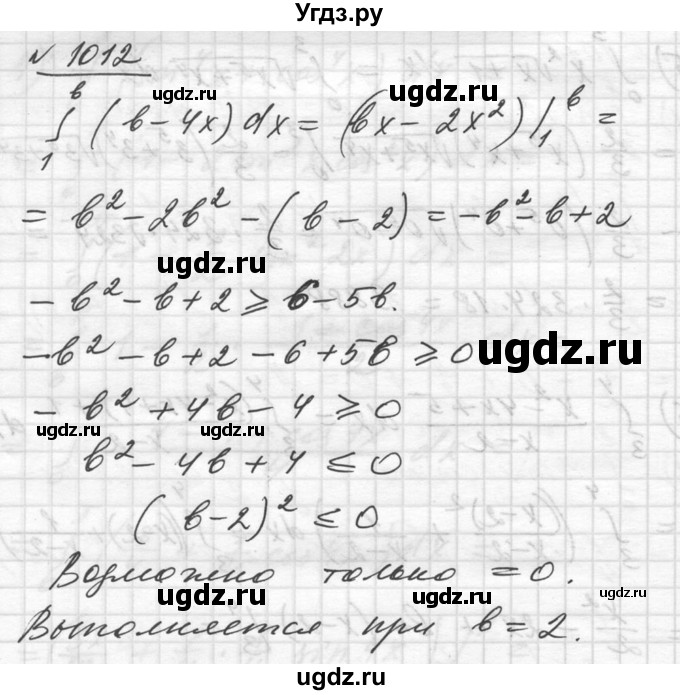 Угдз.ру
№ 1012
ugdz.ru ugdz.ru
∫₁ᵇ (b-4x)dx = (bx-2x²)|₁ᵇ =
= b²-2b²-(b-2) = -b²-b+2
ugdz.ru
-b²-b+2 ≥ 6-5b.
-b²-b+2-6+5b ≥ 0 ugdz.ru
-b²+4b-4 ≥ 0
ugdz.ru ugdz.ru
b²-4b+4 ≤ 0
(b-2)² ≤ 0
Возможно только =0.
ugdz.ru ugdz.ru
Выполняется при b=2.
ugdz.ru
ugdz.ru